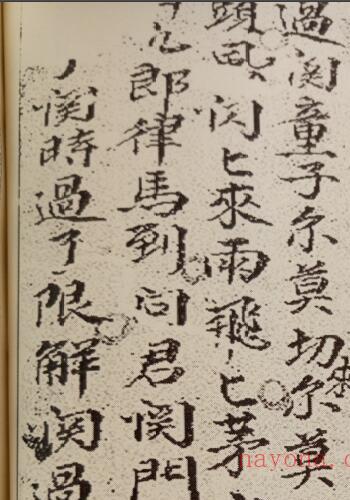 過関童子尔莫切尔莫
頭及闪匕來雨飛匕茅
郎律馬到问君関門
関時過了限解関過
nayona.c